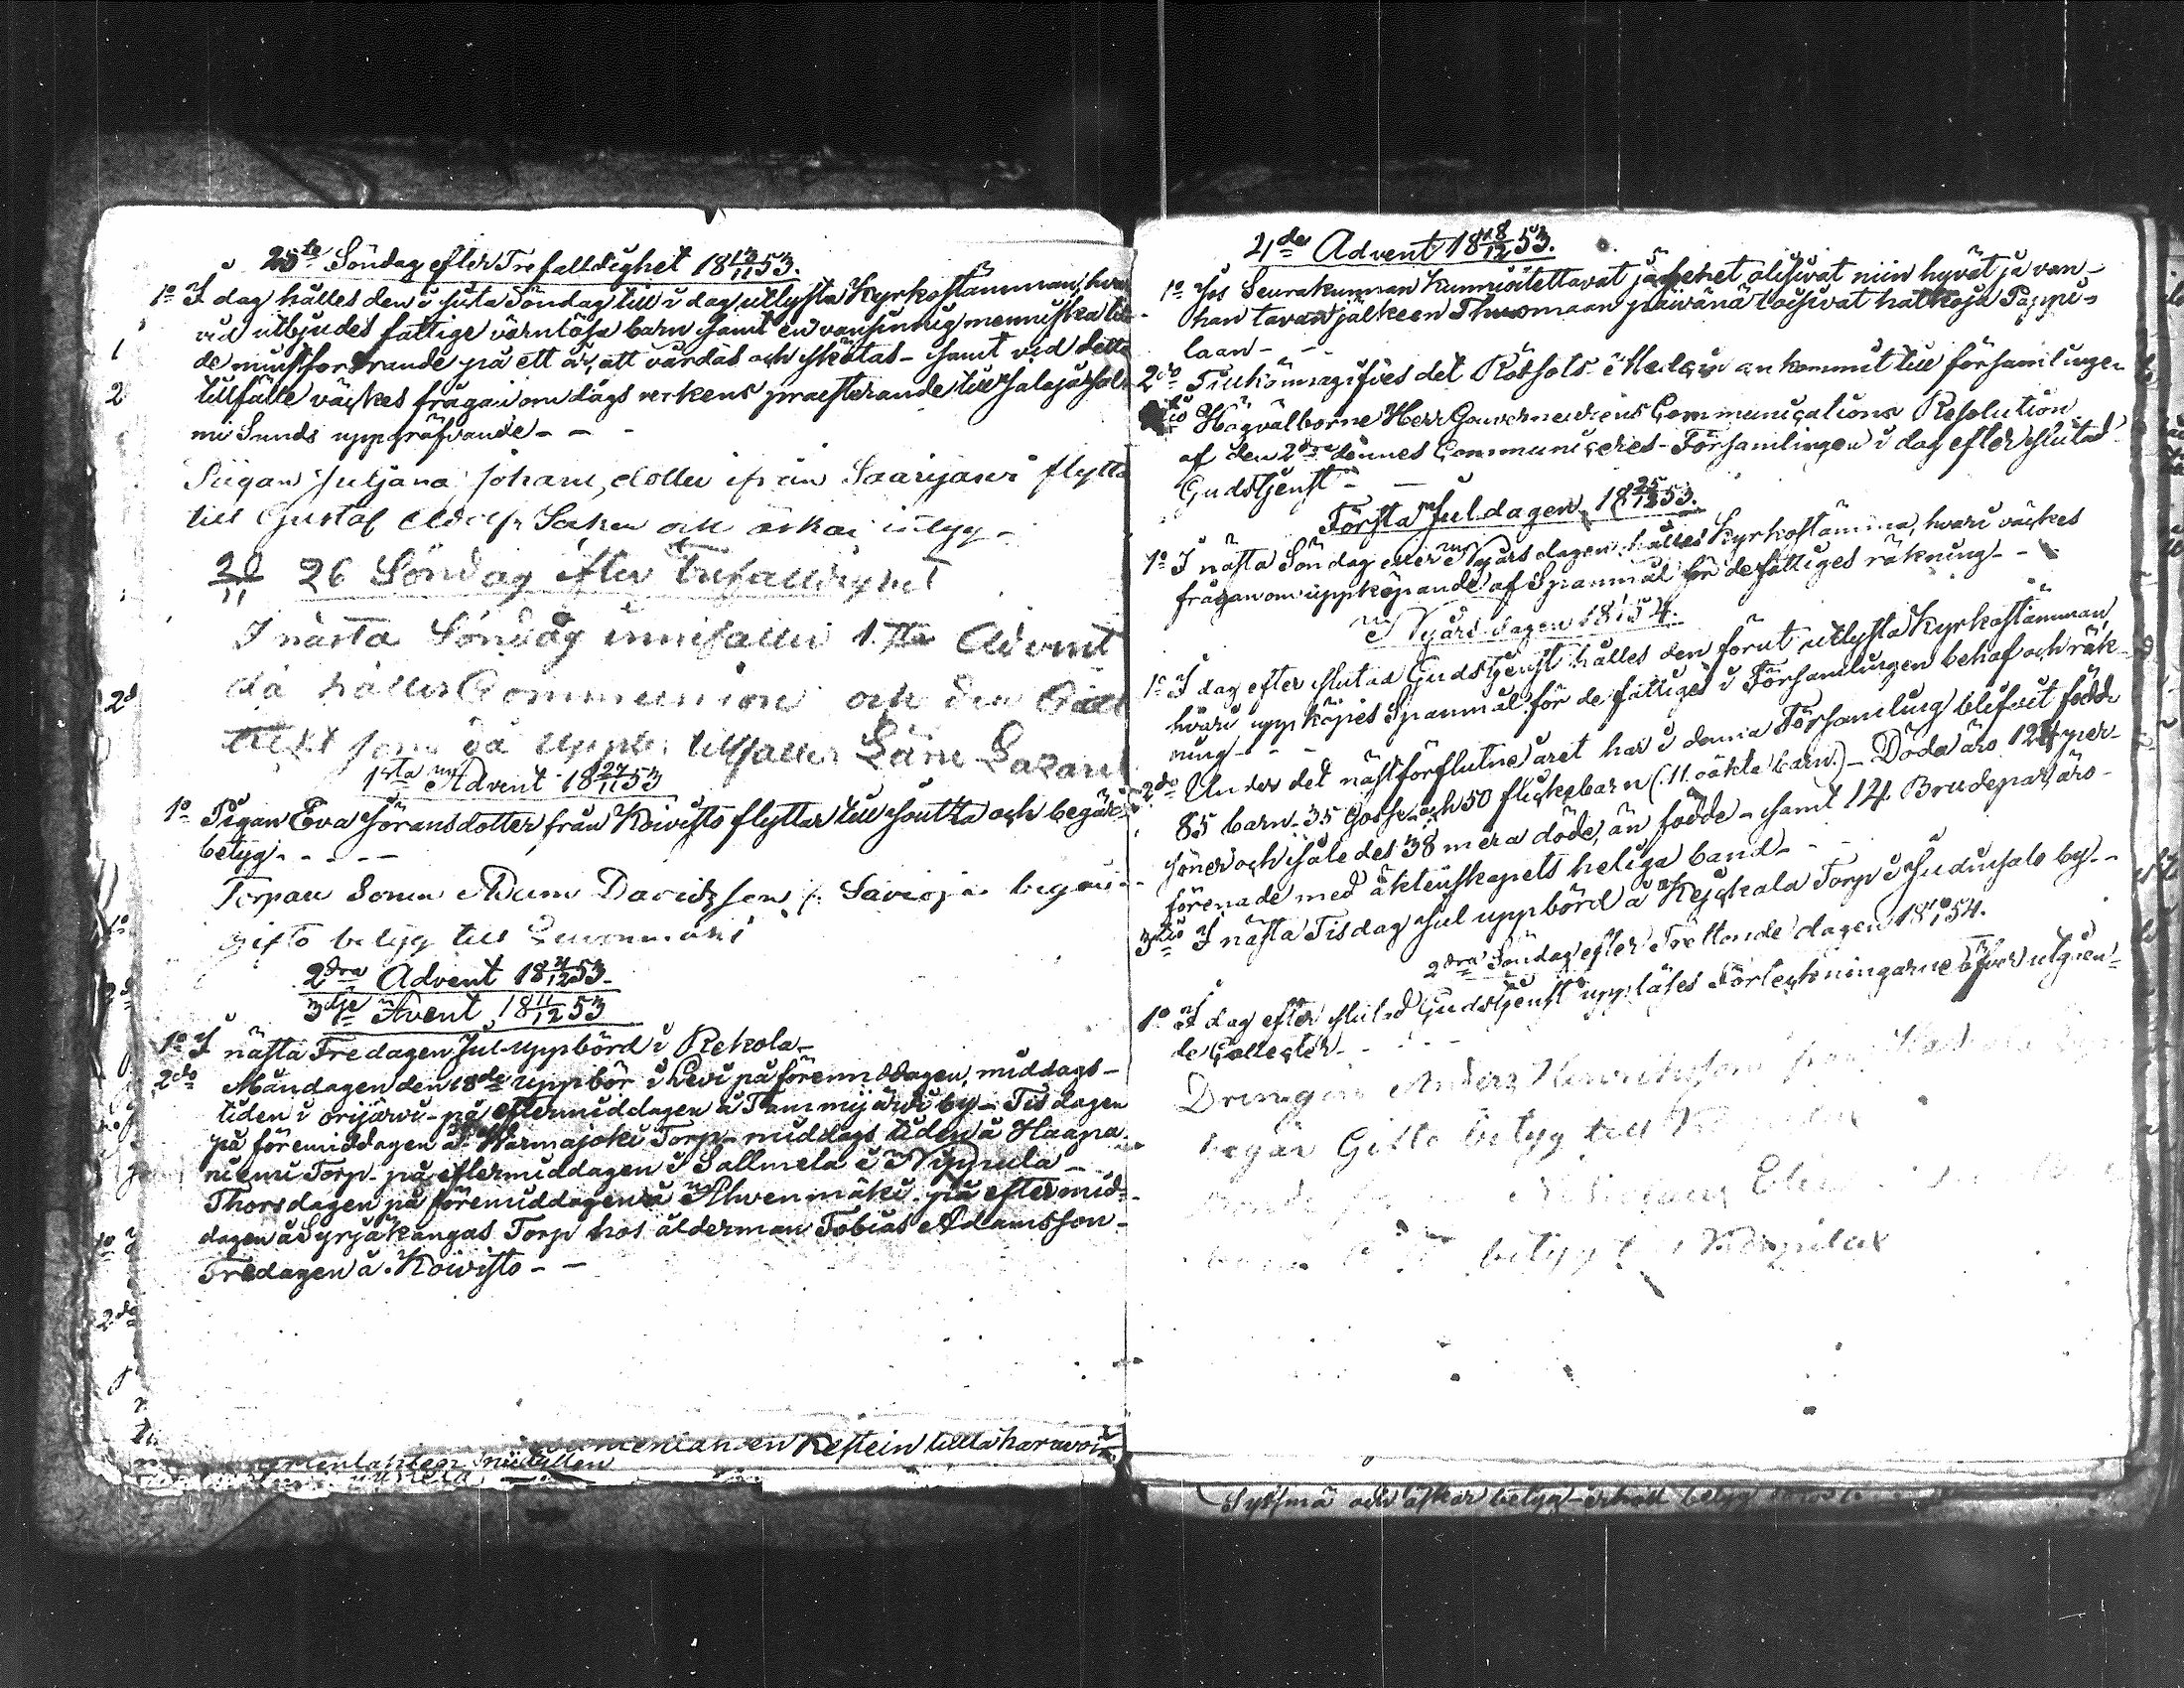 25te Söndag efter Trefalldighet 18 13/11 53.
1o I dag hålles den i sista Söndag till i dag utlysta Kyrkostämman, hvar
vid utbjudes fattige värnlösa barn samt en vansinnig menniska till
de minstfordrande på ett år, att vårdas och skötas - samt vid detta
tillfälle väckes frågan om dags verkens praesterande till
mi Sunds uppgräfvande - -
Piigan Juljana Johans dotter ifrån Saarijärvi flytta
till Gustaf Adolfs Socken och äskar
20/11 26 Söndag efter Trefalldighet
I nästa Söndag innifaller 1sta Advent
då hålles Communion och den
som då uppb: tillfaller Läns Lazaret
1sta Advent 18 27/11 53
1o Pigan Eva Göransdotter från Koivisto flyttar till Joutsa och begär
betyg - - - - -
Torpare Sonen Adam Davidsson fr. Savioja begär
gifto betyg till
2dra Advent 18 4/12 53.
3dje Avent 18 11/12 53
1o I nästa Fredagen Jul-uppbörd i Rekola -
2do Måndagen den 18de uppbör i Levi på förenmddagen, middags-
tiden i orijärvi - på eftermiddagen å Tammijärvi by - Tisdagen
på föremiddagen å Warmajoki Torp - middags tiden å Haapa
niemi Torp - på eftermiddagen i Sallmela i Nyppula -
Thorsdagen på föremiddagen å Ahvenmäki - på eftermid-
dagen å Syrjäkangas Torp hos ålderman Tobias Adamsson -
Fredagen å Koivisto - -
Kestein
4de Advent 18 18/12 53.
1o Jos Seurakunnan Kunnioitettavat jäsenet olisivat niin hyvät ja van-
han tavan jälkeen Thuomaan päivänä toisivat halkoja Pappi-
laan - - -
2do Tillkännagifves det Röthols Medecin an kommit till församlingen
3tio Högvälborne Herr Gouverneurens Communications Resolution
af den 2dre dennes Communiceres Församlingen i dag efter slutad
Gudstjenst - -
Första Juldagen 18 25/12 53.
1o I nästa Söndag eller Nyårs dagen hålles Kyrkostämma, hvari väckes
frågan om uppköpande af Spannmål för de fattiges räkning - -
Nyårs dagen 18 1/1 54.
1o I dag efter slutad Gudstjenst hålles den förut utlysta Kyrkostämman,
hvari uppköpes Spanmål för de fattiges i Församlingen behof och räk-
ning - - -
2do Under det nästförflutne året har i denna Församling blifvit födde
85 barn - 35 Gosse- och 50 flickebarn (: 11 oäkta barn:) - Döda äro 124 per-
soner och således 38 mera döde, än födde - samt 14 Brudepar äro
förenade med äktenskapets heliga band - -
3tio I nästa Tisdag Jul uppbörd å Kejckala Torp i Judinsalo by - -
2dra Söndag efter Trettonde dagen 18 54.
1o I dag efter slutad Gudstjenst uppläses Förteckningarne öfver utgåen-
de Collecter - - -
Drengen Anders Henrichsson från
begär Gifto betyg till
betyg till Korpilax
Sysmä och äskar betyg - erhöll betyg